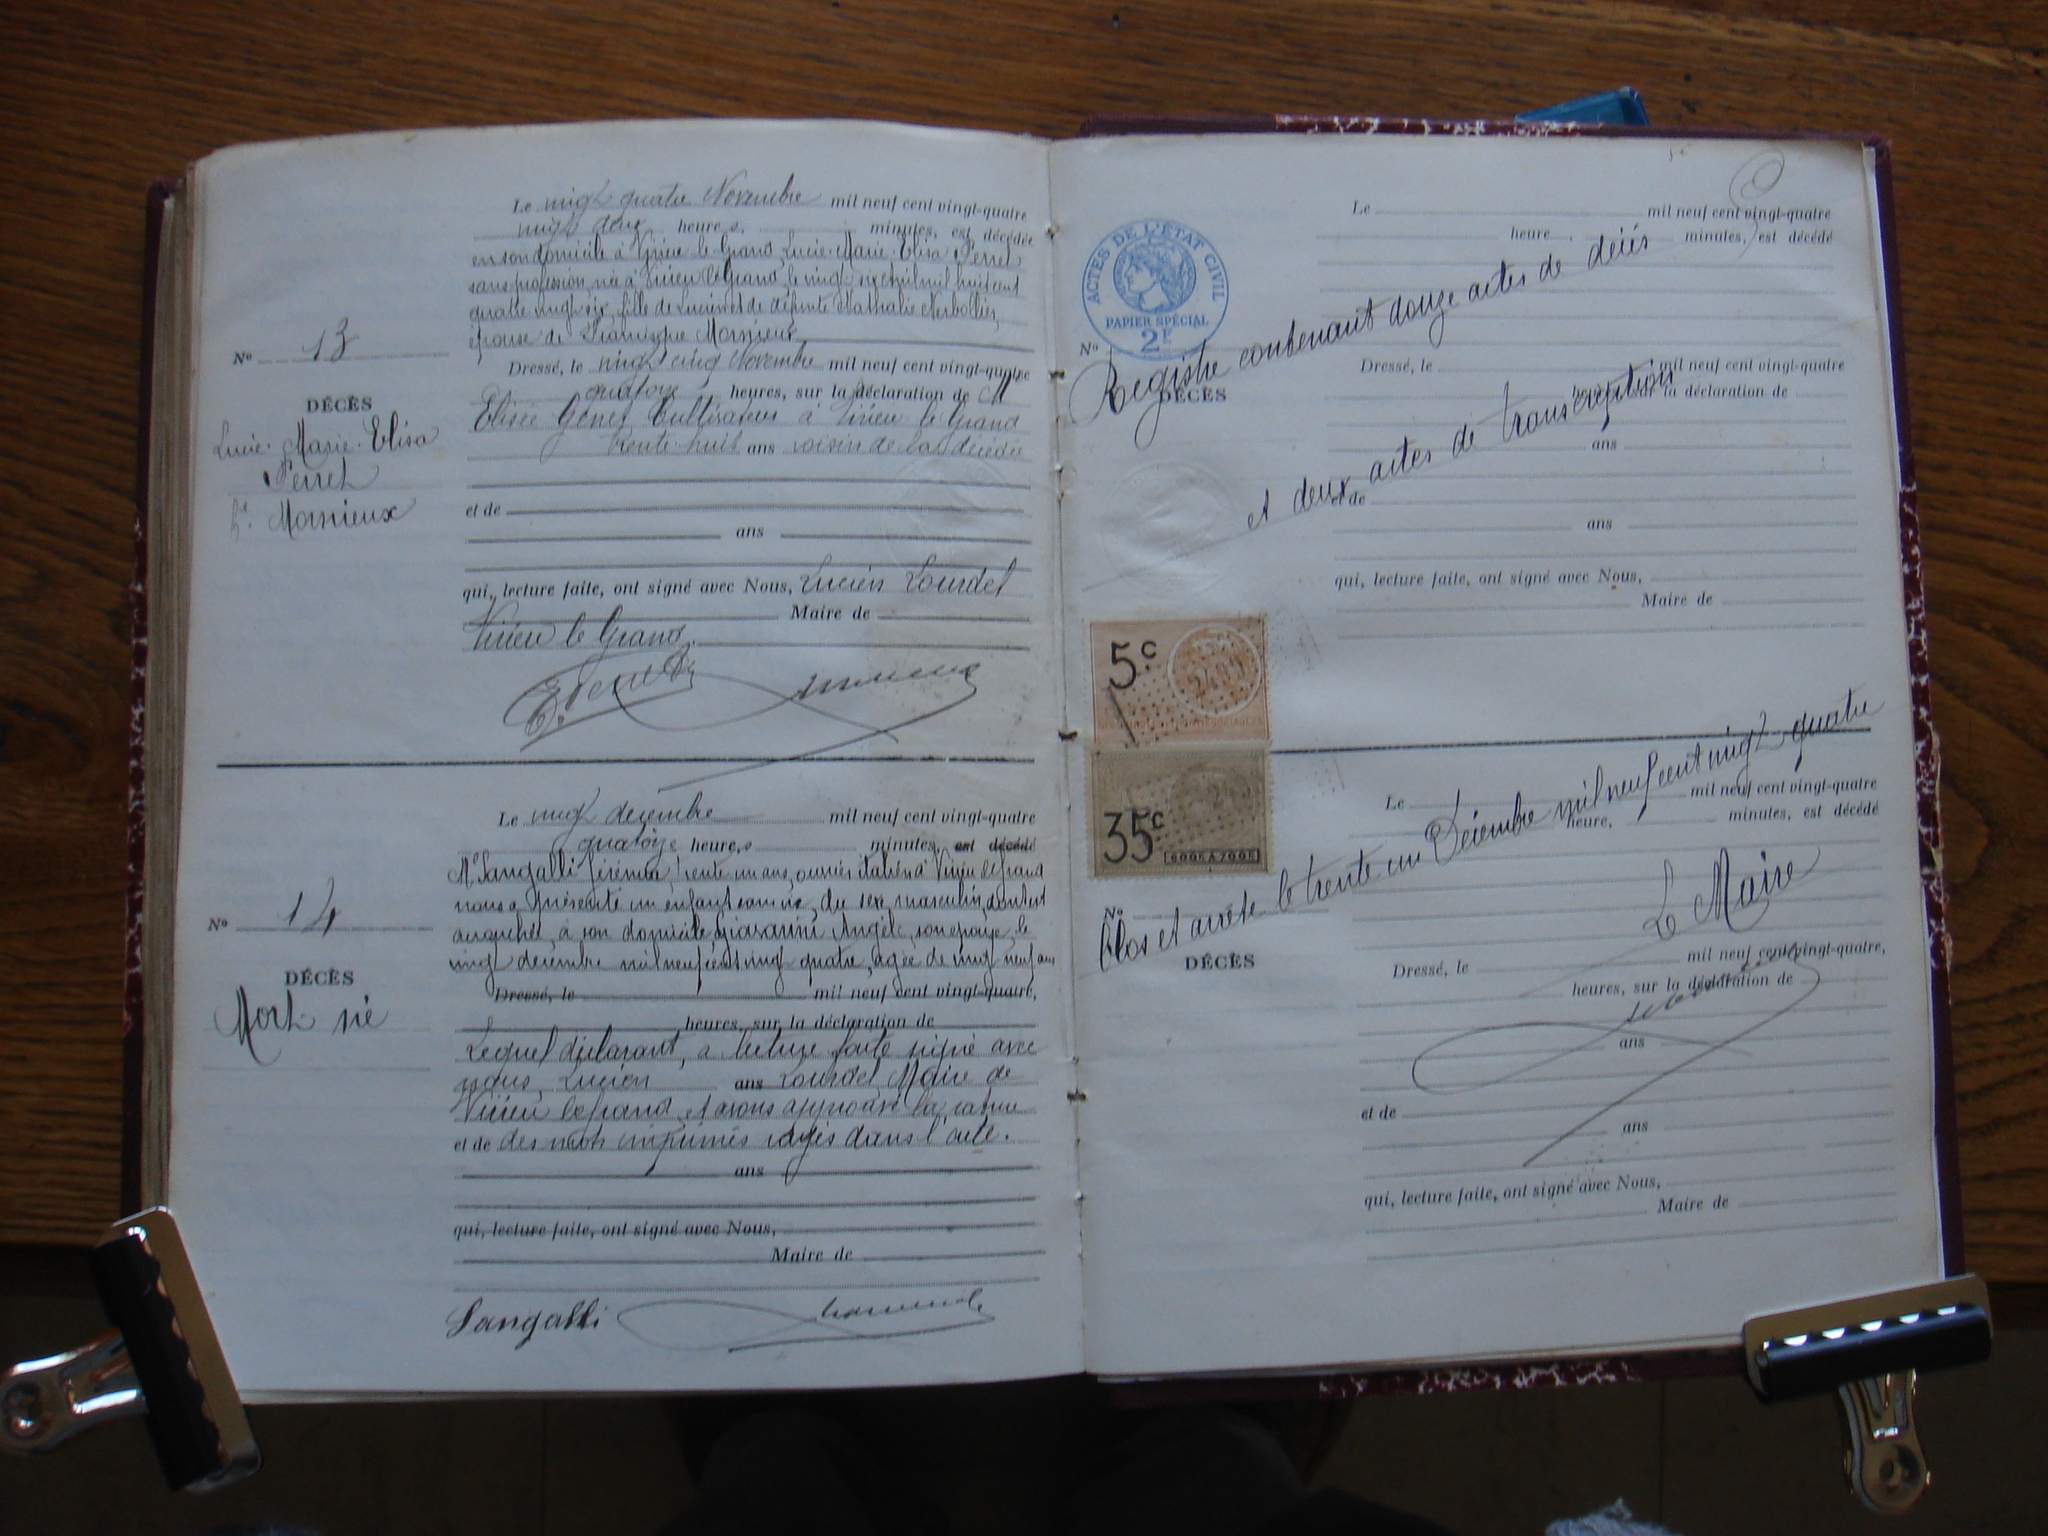 Le vingt quatre Novembre mil neuf cent vingt-quatre
vingt deux heures, minutes, est décédée
en son domicile à Virieu le Grand, Lucie-Marie-Elisa Perret
sans profession, née à Virieu le Grand, le vingt six mil huit cent
quatre vingt six, fille de Lucien et de défunte Nathalie
épouse de Monnieux
Nº 13
Dressé, le vingt cinq Novembre mil neuf cent vingt-quatre
quatorze heures, sur la déclaration de M
DÉCÈS
Elisée Genet Cultivateur à Virieu le Grand
Lucie-Marie-Elisa
trente-huit ans voisin de la décédée
Perret
fe Monnieux
et de
ans
qui, lecture faite, ont signé avec Nous, Lucien Lourdel
Maire de
Virieu le Grand.
Le vingt décembre mil neuf cent vingt-quatre
quatorze heures minutes, est décédé
Mr Sangalli trente un ans, ouvrier italien à Virieu le Grand
nous a présenté un enfant sans vie, du sexe masculin, dont est
accouchée, à son domicile Giavarini Angèle, son épouse, le
Nº 14
vingt décembre mil neuf cent vingt quatre, agée de vingt neuf ans
DÉCÈS
Dressé, le mil neuf cent vingt-quatre,
Mort né
heures, sur la déclaration de
Lequel déclarant, a lecture faite signé avec
nous, Lucien ans Lourdel, Maire de
Virieu le grand, et avons approuvé la rature
et de des mots imprimés rayés dans l'acte.
ans
qui, lecture faite, ont signé avec Nous,
Maire de
Sangalli
Le mil neuf cent vingt-quatre
heure minutes, est décédé
ACTES DE L'ÉTAT CIVIL
PAPIER SPÉCIAL
2F
Nº
Registre contenant douze actes de décès
Dressé, le mil neuf cent vingt-quatre
DÉCÈS
heures, sur la déclaration de
et deux actes de transcription
ans
et de
ans
qui, lecture faite, ont signé avec Nous,
Maire de
5c
35c
Le mil neuf cent vingt-quatre
heure, minutes, est décédé
Clos et arrêté le trente un Décembre mil neuf cent vingt-quatre
Le Maire
Nº
DÉCÈS
Dressé, le mil neuf cent vingt-quatre,
heures, sur la déclaration de
ans
et de
ans
qui, lecture faite, ont signé avec Nous,
Maire de